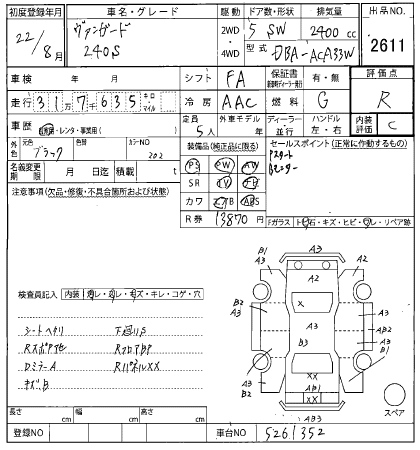 初度登録年月 車名・グレード 駆動 ドア数・形状 排気量 出品NO.
22/8月 ヴァンガード 240S 2WD・4WD 5 SW 2400 cc 2611
型式 DBA-ACA33W
車検 年 月 シフト FA 保証書 有・無 評価点
走行 31万7千635 キロ・マイル 冷房 AAC 燃料 G R
車歴 自家用・レンタ・事業用( ) 定員 5人 外車モデル 年 ディーラー・並行 ハンドル 左・右 内装評価 C
外色 元色 ブラック 色替 カラーNO 202
装備品(純正品に限る) セールスポイント(正常に作動するもの)
名義変更期限 月 日迄 積載 t
PS PW AW
SR TV ナビ
カワ エアB ABS
R券 13870円
Pスタート
Bモニター
注意事項(欠品・修復・不具合箇所および状態)
Fガラス トビ石・キズ・ヒビ・ワレ・リペア跡
検査員記入 内装 スレ・キズ・キレ・コゲ・穴
シートヘタリ 下廻りS
Dミラー A RパネルXX
キズ 有
A3
B1 A3 A2 A2
B2 A3 X A3 A3 B2
B3
A3 B2 XX A3 B1
AB1
XX
AB3
スペア
長さ cm 幅 cm 高さ cm
登録NO 車台NO 5261352